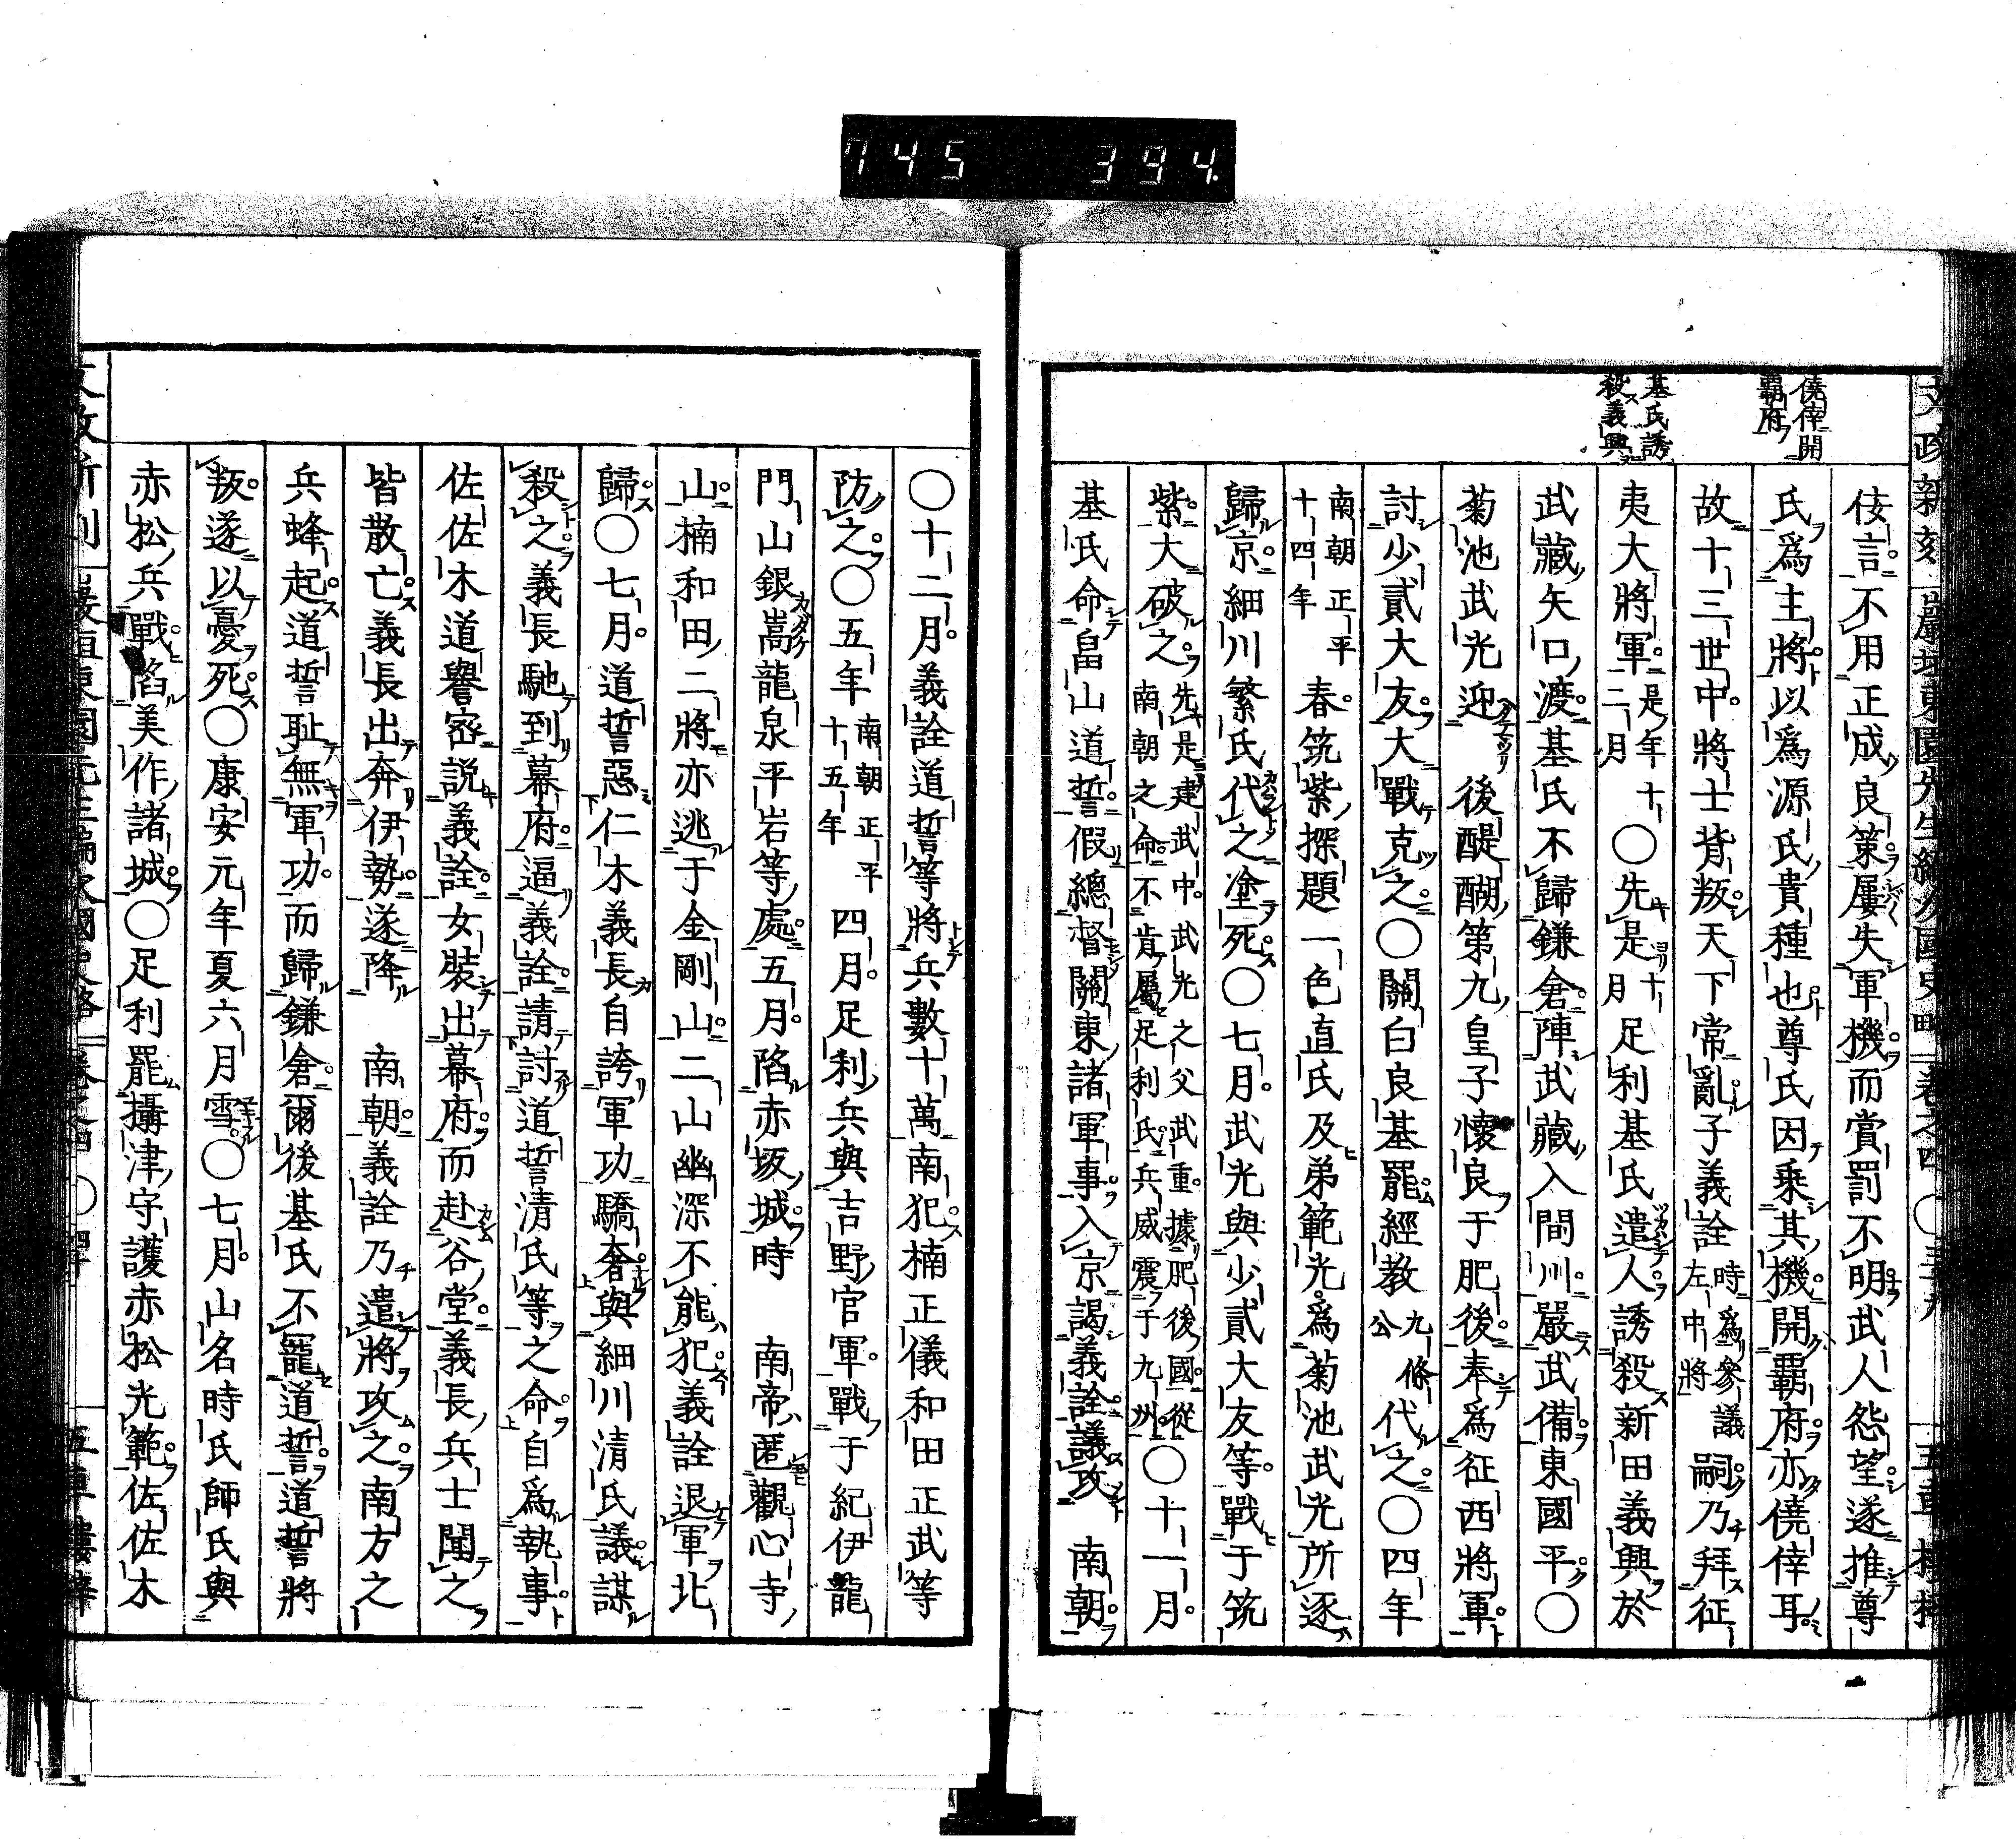 745 394.
僥倖開
覇府
基氏誘
殺義興
侫言不用正成良策屢失軍機而賞罰不明武人怨望遂推尊
氏爲主將以爲源氏貴種也尊氏因乘其機開覇府亦僥倖耳
故十三世中將士背叛天下常亂子義詮時爲參議左中將嗣乃拜征
夷大將軍是年十二月〇先是十月足利基氏遣人誘殺新田義興於
武藏矢口渡基氏不歸鎌倉陣武藏入間川嚴武備東國平〇
菊池武光迎 後醍醐第九皇子懷良于肥後奉爲征西將軍
討少貳大友大戰克之〇關白良基罷經教九條公代之〇四年
南朝正平十四年春筑紫探題一色直氏及弟範光爲菊池武光所逐
歸京細川繁氏代之塗死〇七月武光與少貳大友等戰于筑
紫大破之先是建武中武光之父武重據肥後國從南朝之命不肯屬足利氏兵威震于九州〇十一月
基氏命畠山道誓假總督關東諸軍事入京謁義詮議攻 南朝
〇十二月義詮道誓等將兵數十萬南犯楠正儀和田正武等
防之〇五年南朝正平十五年四月足利兵與吉野官軍戰于紀伊龍
門山銀嵩龍泉平岩等處五月陷赤坂城時 南帝匿觀心寺
山楠和田二將亦逃于金剛山二山幽深不能犯義詮退軍北
歸〇七月道誓惡仁木義長自誇軍功驕奢與細川清氏議謀
殺之義長馳到幕府逼義詮請討道誓清氏等之命自爲執事
佐佐木道譽密説義詮女裝出幕府而赴谷堂義長兵士聞之
皆散亡義長出奔伊勢遂降 南朝義詮乃遣將攻之南方之
兵蜂起道誓耻無軍功而歸鎌倉爾後基氏不寵道誓道誓將
叛遂以憂死〇康安元年夏六月雪〇七月山名時氏師氏與
赤松兵戰陷美作諸城〇足利罷攝津守護赤松光範佐佐木